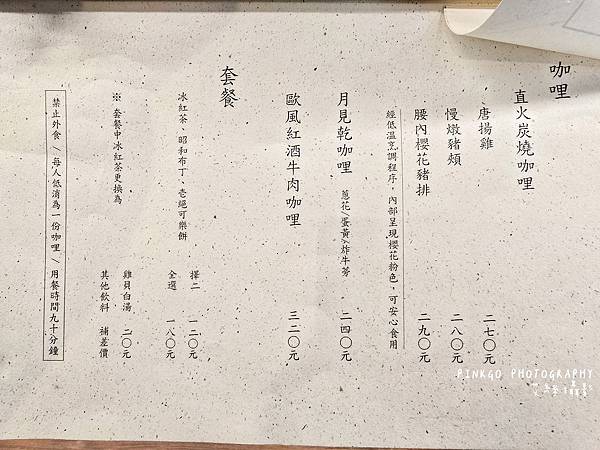 咖哩
直火炭燒咖哩
唐揚雞 二七〇元
慢燉豬頰 二八〇元
腰內櫻花豬排 二九〇元
經低溫烹調程序，內部呈現櫻花粉色，可安心食用
月見乾咖哩 蔥花/蛋黃/炸牛蒡 二四〇元
歐風紅酒牛肉咖哩 三二〇元
套餐
冰紅茶、昭和布丁、壱絕可樂餅 擇二 一二〇元
全選 一八〇元
※ 套餐中冰紅茶更換為 雞貝白湯 二〇元
其他飲料 補差價
禁止外食 / 每人低消為一份咖哩 / 用餐時間九十分鐘
PINKGO PHOTOGRAPHY